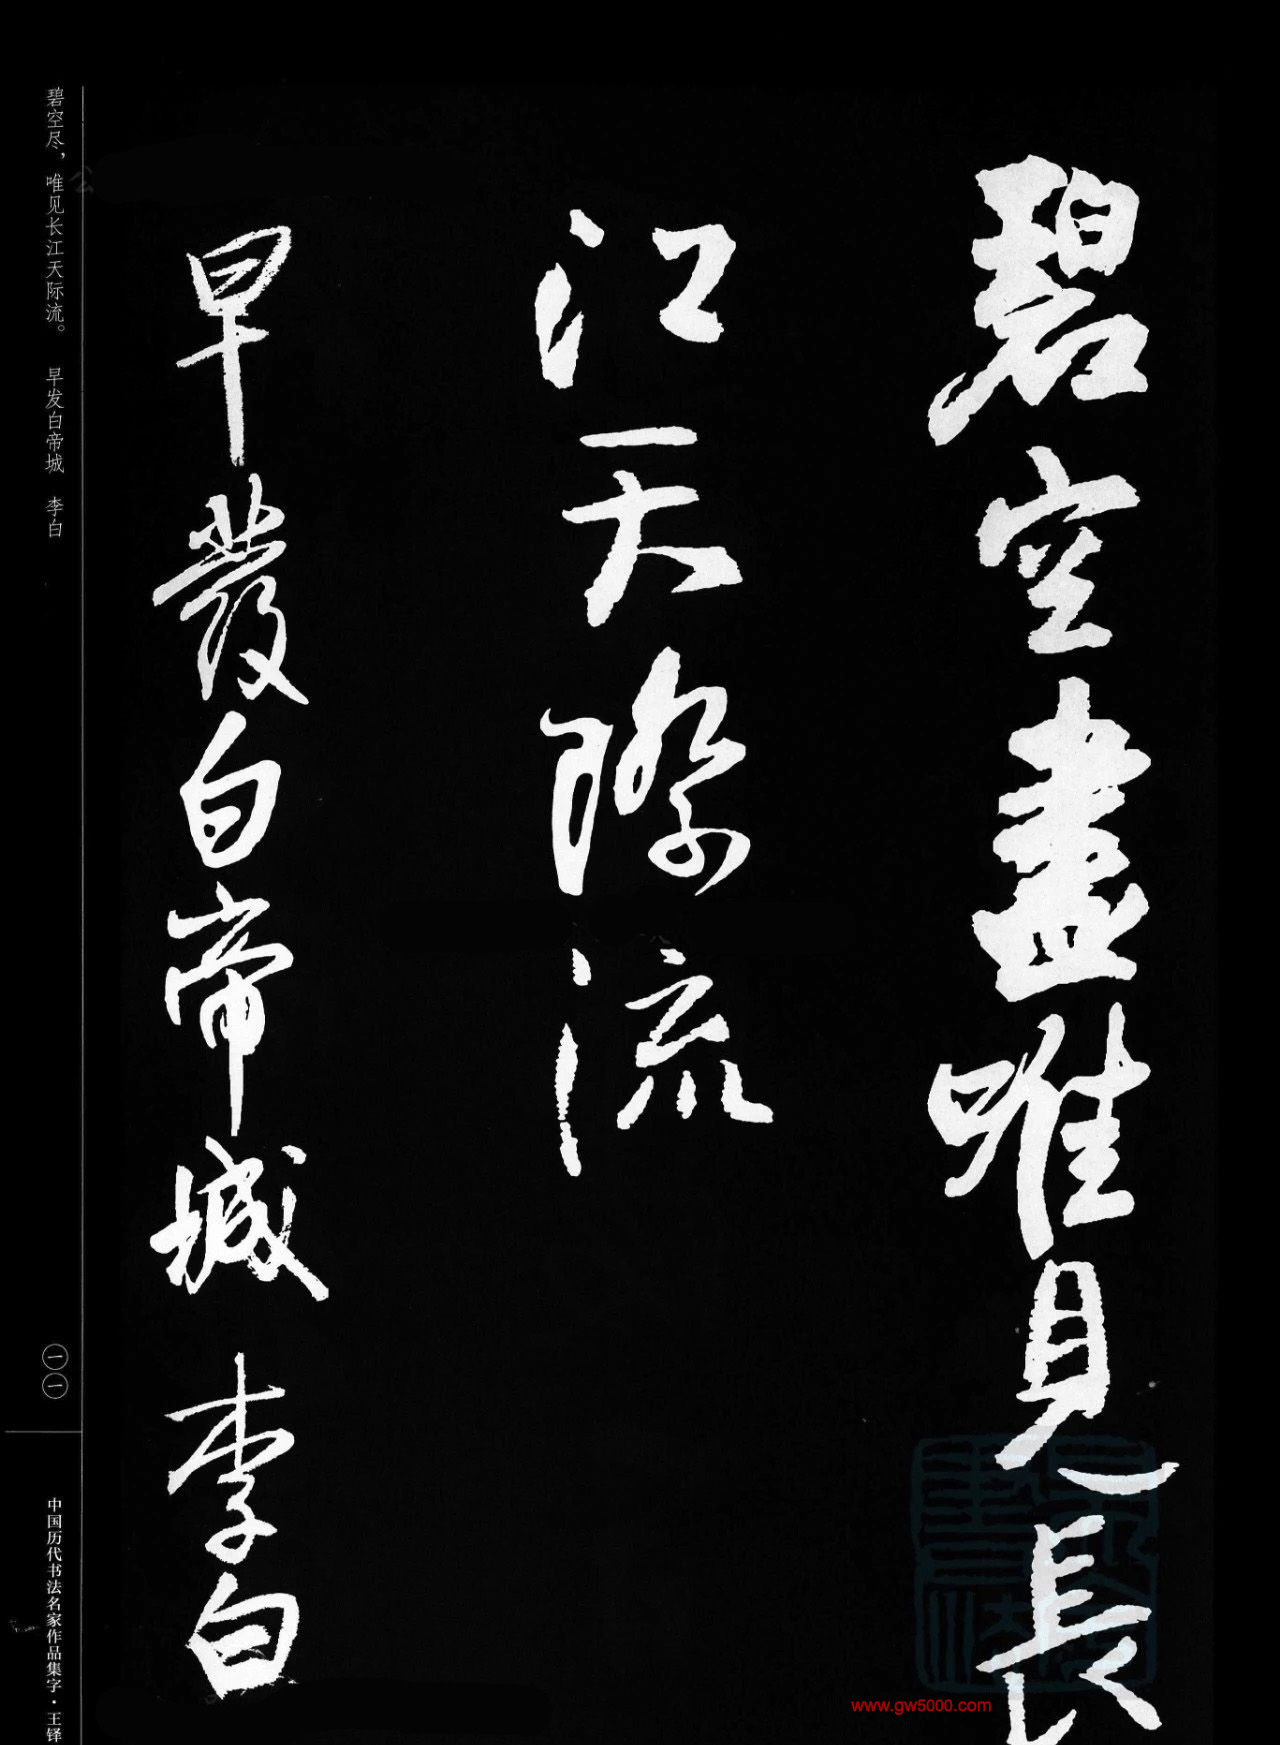 碧空盡唯見長
江天際流
早發白帝城 李白
碧空尽，唯见长江天际流。 早发白帝城 李白
一一
中国历代书法名家作品集字·王铎
www.gw5000.com